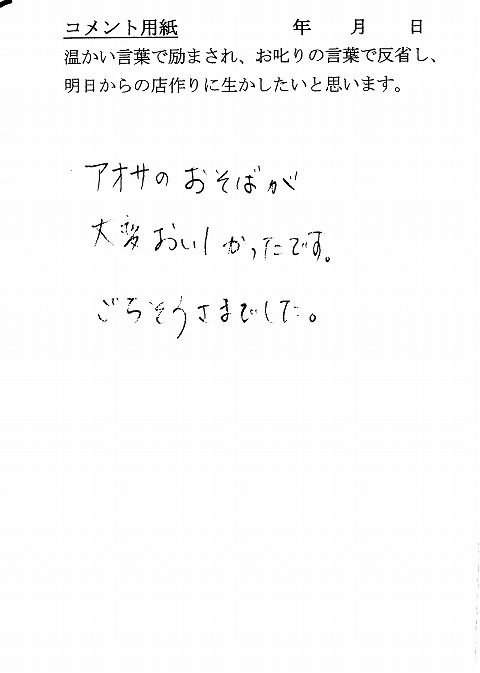 コメント用紙　　　　　年　月　日
温かい言葉で励まされ、お叱りの言葉で反省し、
明日からの店作りに生かしたいと思います。
アオサのおそばが
大変おいしかったです。
ごちそうさまでした。